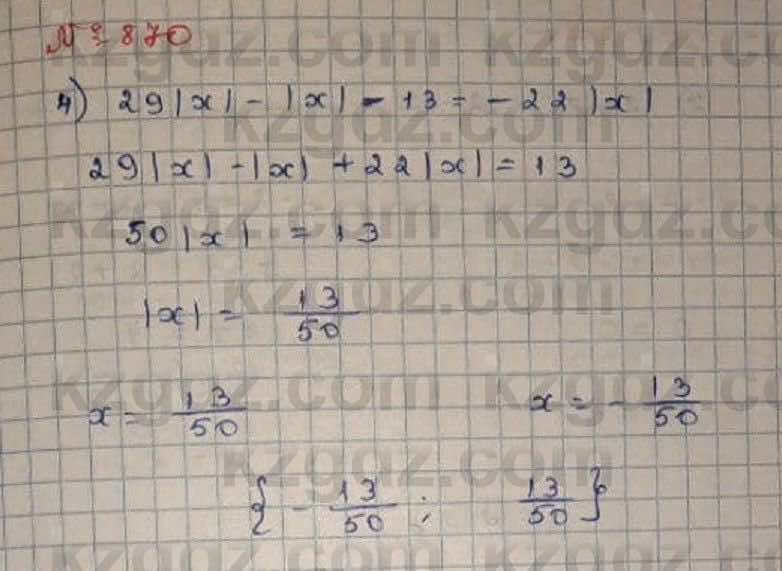 № 870
4) 29|x| - |x| - 13 = -22|x|
29|x| - |x| + 22|x| = 13
50|x| = 13
|x| = 13/50
x = 13/50 x = -13/50
{-13/50 ; 13/50}
kzgdz.com